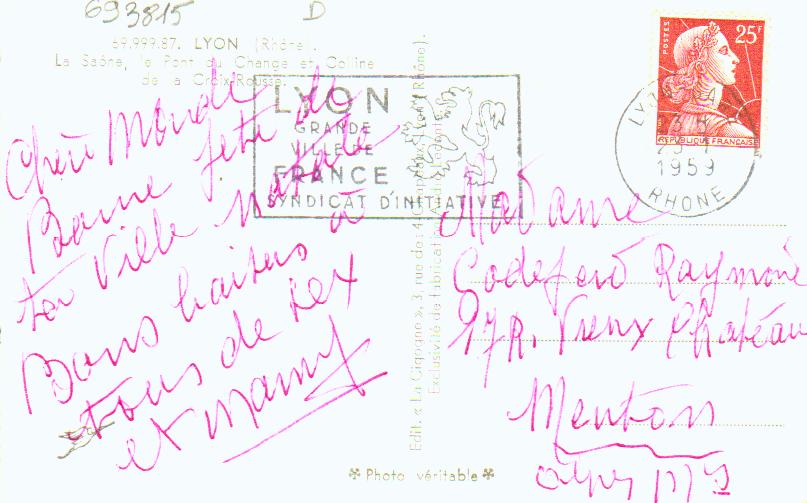 693815 D
69.999.87. LYON (Rhône).
La Saône, le Pont du Change et Colline
de la Croix-Rousse.
LYON
GRANDE
VILLE DE
FRANCE
SYNDICAT D'INITIATIVE
POSTES
25F
REPUBLIQUE FRANÇAISE
LYON
1959
RHONE
Bonne fête de
ton Ville natale
Bons baisers à
tous de Rex
et Mamy
Edit. « La Cigogne », 3, rue de
Exclusivité de fabrication
Madame
Raymone
17 R. Vieux Château
Menton
Alpes Mmes
Photo véritable